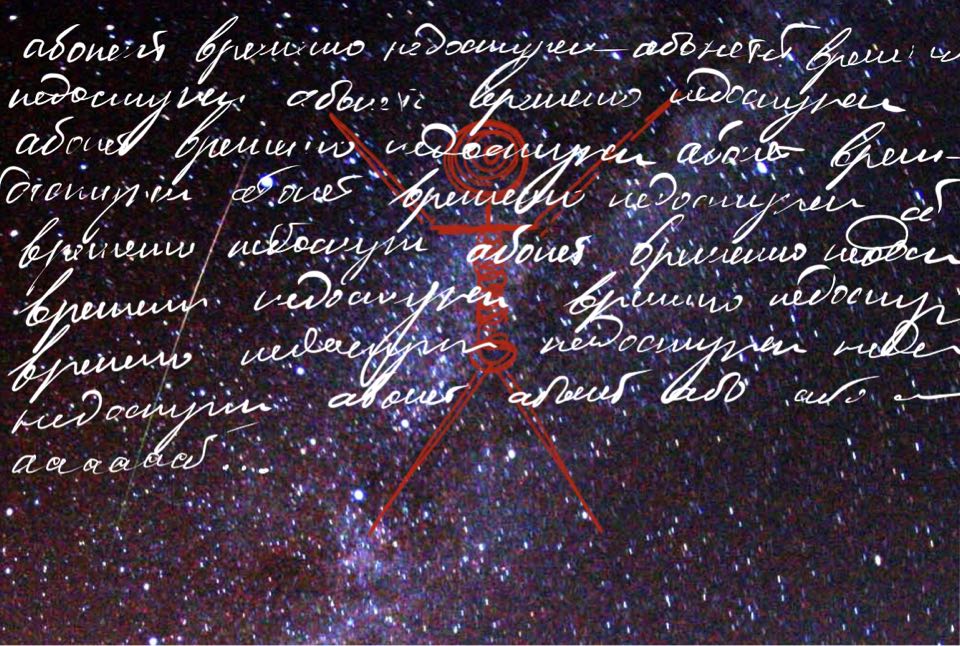 абонент временно недоступен – абонент времен
недоступен абонент временно недоступен
абонет временно недоступен абонет времен–
доступен абонет временно недоступен аб
временно недоступн абонет временно недос
временно недоступен временно недоступ
временно недоступен недоступен недо
недоступен абонет абонет або або
аааааб...